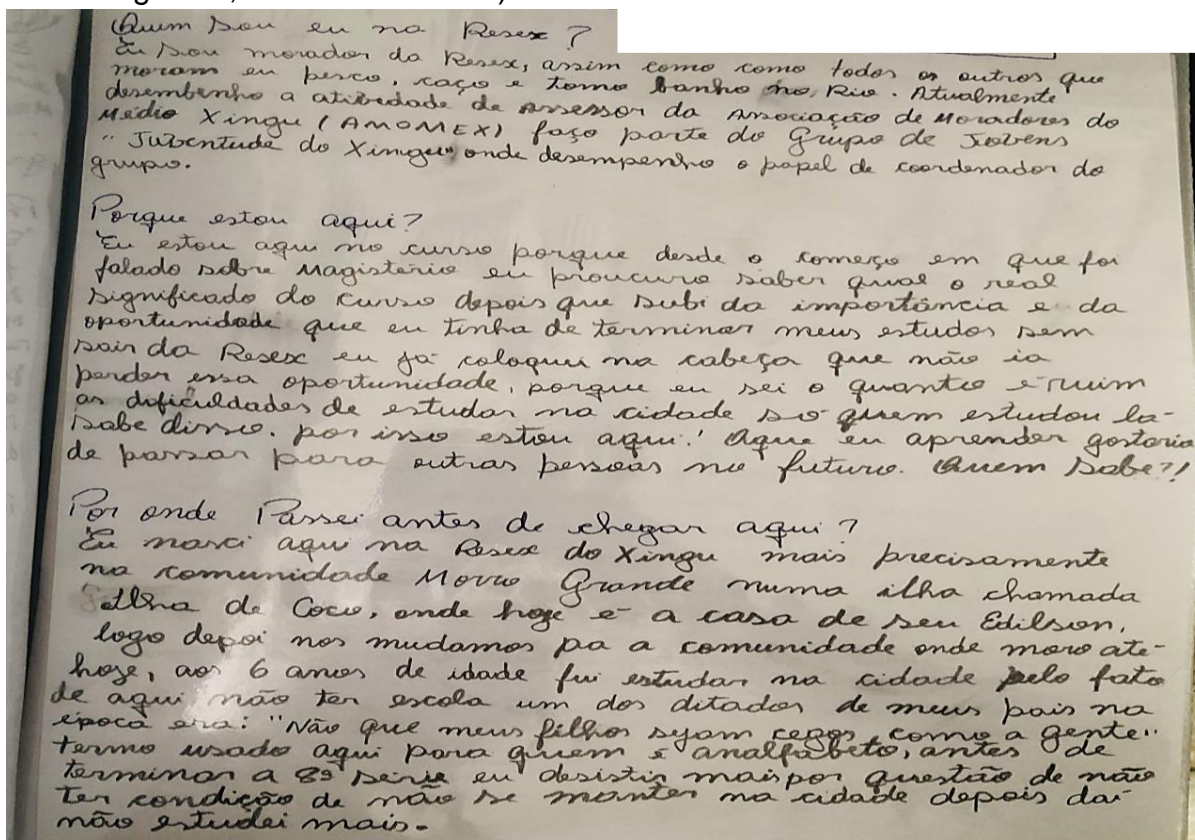 Quem sou eu na Resex?
Eu sou morador da Resex, assim como como todos os outros que
moram eu pesco, caço e tomo banho no Rio. Atualmente
desembenho a atibedade de assessor da Associação de Moradores do
Médio Xingu (AMOMEX) faço parte do Grupo de Jovens
"Jubentude do Xingu" onde desempenho o papel de coordenador do
grupo.
Porque estou aqui?
Eu estou aqui no curso porque desde o começo em que foi
falado sobre Magistério eu proucuro saber qual o real
significado do curso depois que subi da importância e da
oportunidade que eu tinha de terminar meus estudos sem
sair da Resex eu já coloquei na cabeça que não ia
perder essa oportunidade, porque eu sei o quanto é ruim
as dificuldades de estudar na cidade só quem estudou lá
sabe disso. por isso estou aqui! Aque eu aprender gostaria
de passar para outras pessoas no futuro. Quem Sabe?!
Por onde Passei antes de chegar aqui?
Eu nasci aqui na Resex do Xingu mais precisamente
na comunidade Morro Grande numa ilha chamada
Ilha de Coco, onde hoje é a casa de seu Edilson,
logo depoi nos mudamos pa a comunidade onde moro até
hoje, aos 6 anos de idade fui estudar na cidade pelo fato
de aqui não ter escola um dos ditados de meus pais na
epoca era: "Não que meus filhos sejam cegos como a gente"
termo usado aqui para quem é analfabeto, antes de
terminar a 8ª serie eu desistir mais por questão de não
ter condição de não se manter na cidade depois daí
não estudei mais.